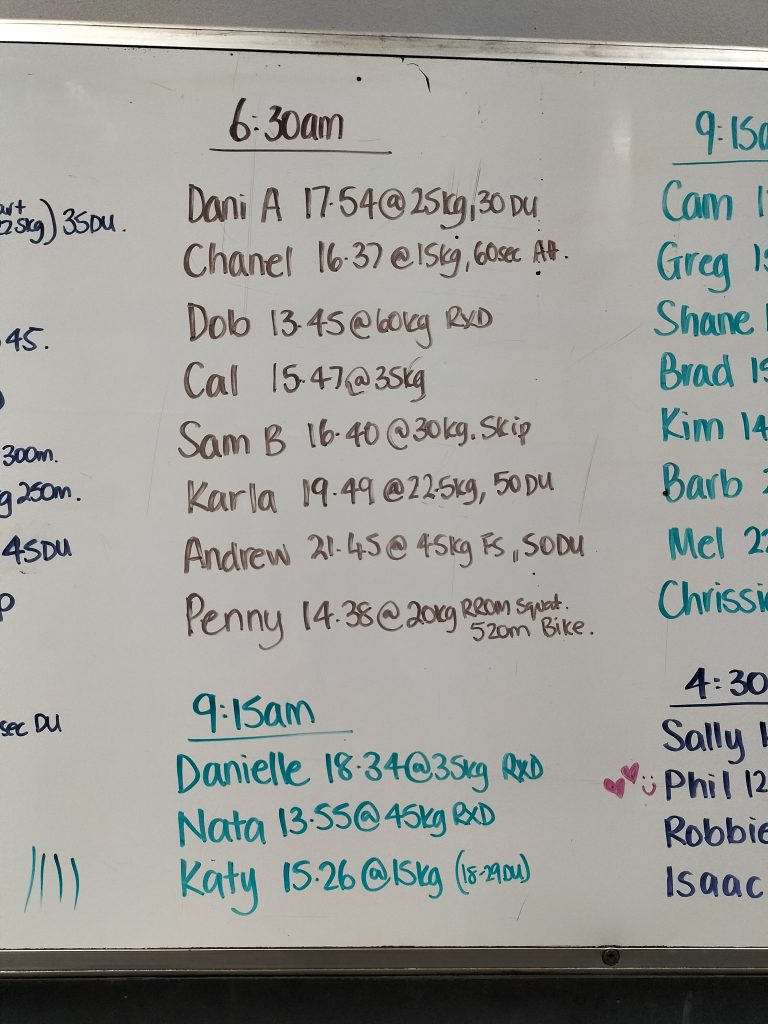 35DU.
45.
300m.
250m.
45DU
sec DU
6:30am
Dani A 17.54@25kg, 30 DU
Chanel 16.37@15kg, 60sec Att.
Dob 13.45@60kg RXD
Cal 15.47@35kg
Sam B 16.40@30kg. Skip
Karla 19.49@22.5kg, 50DU
Andrew 21.45@45kg FS, 50DU
Penny 14.38@20kg RROM Squat.
520m Bike.
9:15am
Danielle 18.34@35kg RXD
Nata 13.55@45kg RXD
Katy 15.26@15kg (18-29DU)
9:15a
Cam
Greg
Shane
Brad
Kim 14
Barb
Mel 22
Chrissie
4:30
Sally
Phil 12
Robbie
Isaac